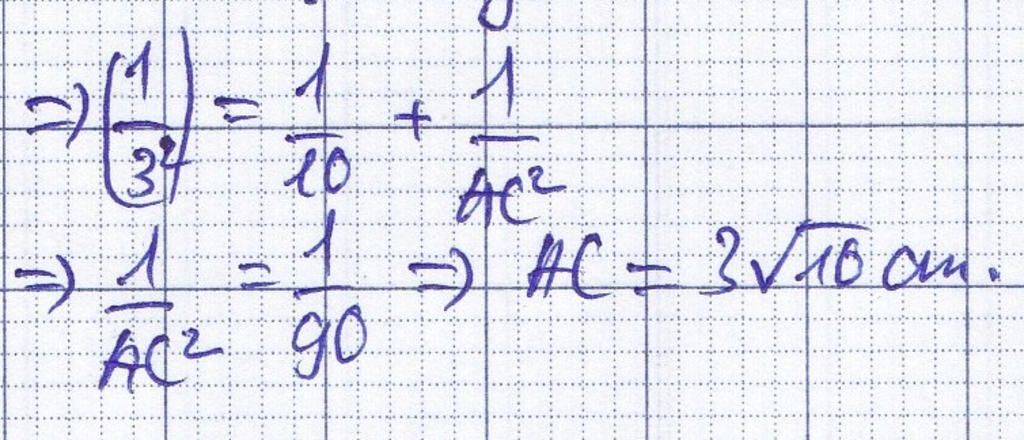 ⇒ (1/3²) = 1/10 + 1/AC²
⇒ 1/AC² = 1/90 ⇒ AC = 3√10 cm.